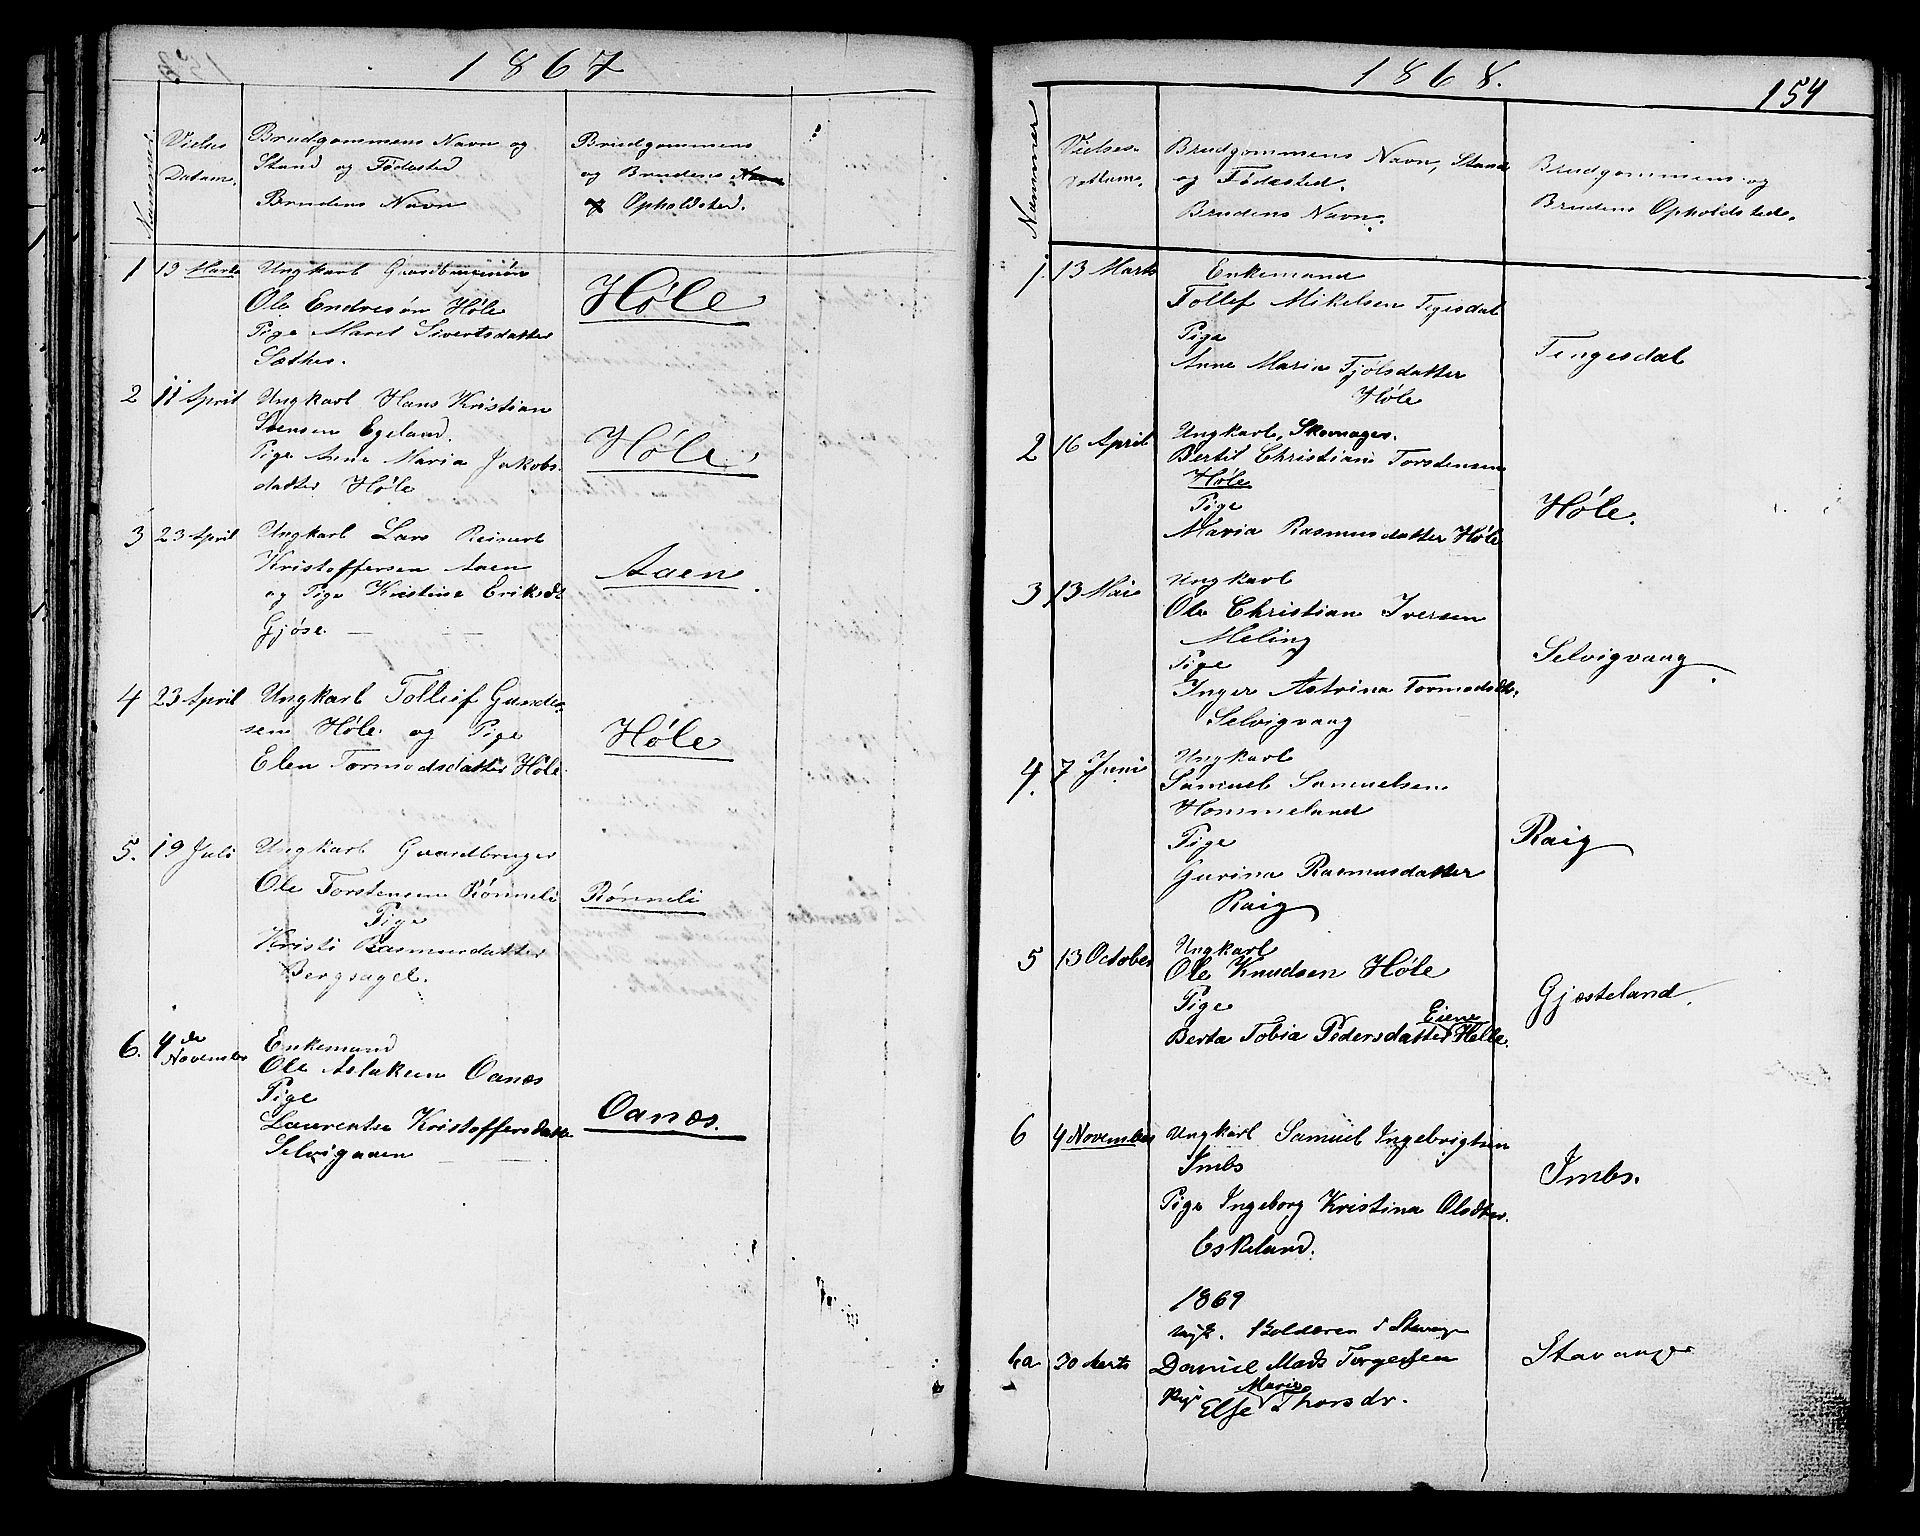 1867
Nummer
Vielses
Datum.
Brudgommens Navn og
Stand og Födested
Brudens Navn
Brudgommens
og Brudens Navn
og Opholdsted.
1 13 Marts Ungkarl Gaardbruger
Ole Endresön Høle
Pige Maret Sivertsdatter
Sæther.
Høle
2 11 April Ungkarl Hans Kristian
Svensen Egeland.
Pige Anne Maria Jakobs
datter Høle
Høle
3 23 April Ungkarl Lars Reinert
Kristoffersen Aaen
og Pige Kristine Eriksdt
Gjøse.
Aaen
4 23 April Ungkarl Tollef Gunder
sen Høle og Pige
Elen Tormodsdatter Høle
Høle
5. 19 Juli Ungkarl Gaardbruger
Ole Torstensen Rönneli
Pige
Kristi Rasmusdatter
Bergsagel.
Rönneli
6. 4de November Enkemand
Ole Aslaksen Oanæs
Pige
Laurentse Kristoffersdatter
Selvigaaen
Oanæs.
1868.
154
Nummer
Vielses-
Datum.
Brudgommens Navn, Stand
og Födested.
Brudens Navn.
Brudgommens og
Brudens Opholdsted.
1. 13 Marts Enkemand
Tollef Mikelsen Tegesdal
Pige
Anne Maria Tjölsdatter
Høle
Tengesdal
2 16 April Ungkarl, Skomager.
Bertil Christian Torstensen
Høle
Pige
Maria Rasmusdatter Høle
Høle.
3 13 Mai Ungkarl
Ole Christian Iversen
Meling
Pige
Inger Astrina Tormodsdt.
Selvigvaag
Selvigvaag.
4. 7 Juni Ungkarl
Samuel Samuelsen
Hommeland
Pige
Gurina Rasmusdatter
Raig
Raig
5 13 October Ungkarl
Ole Knudsen Høle
Pige
Eiene
Berta Tobia Pedersdatter Helle.
Gjæsteland.
6 4 November Ungkarl Samuel Ingebrigtsen
Imbs
Pige Ingeborg Kristina Olsdter.
Eskeland.
Imbs.
1869
i Stavanger
6a 30 Marts Daniel Mads Torgersen
Marie
Pige Else Thorsdr.
Stavanger